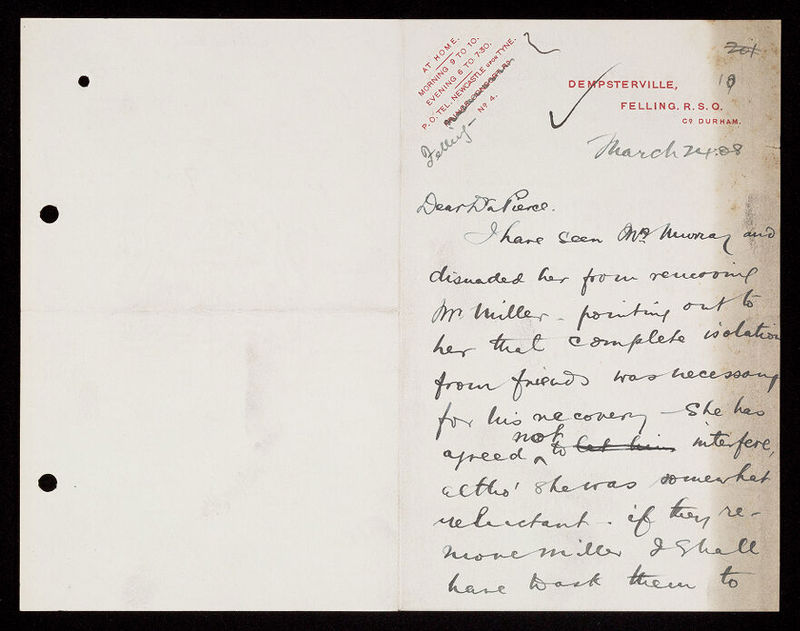 AT HOME.
MORNING 9 TO 10.
EVENING 6 TO 7.30.
P.O. TEL. NEWCASTLE UPON TYNE.
Nº 4.
Felling
201
19
DEMPSTERVILLE,
FELLING. R.S.O.
Cº DURHAM.
March 24.08
Dear Dr Pierce.
I have seen Mrs Murray and
disuaded her from removing
Mr Miller - pointing out to
her that complete isolation
from friends was necessary
for his recovery - She has
agreed not to let him interfere,
altho' she was somewhat
reluctant - if they re-
move Miller I shall
have to ask them to